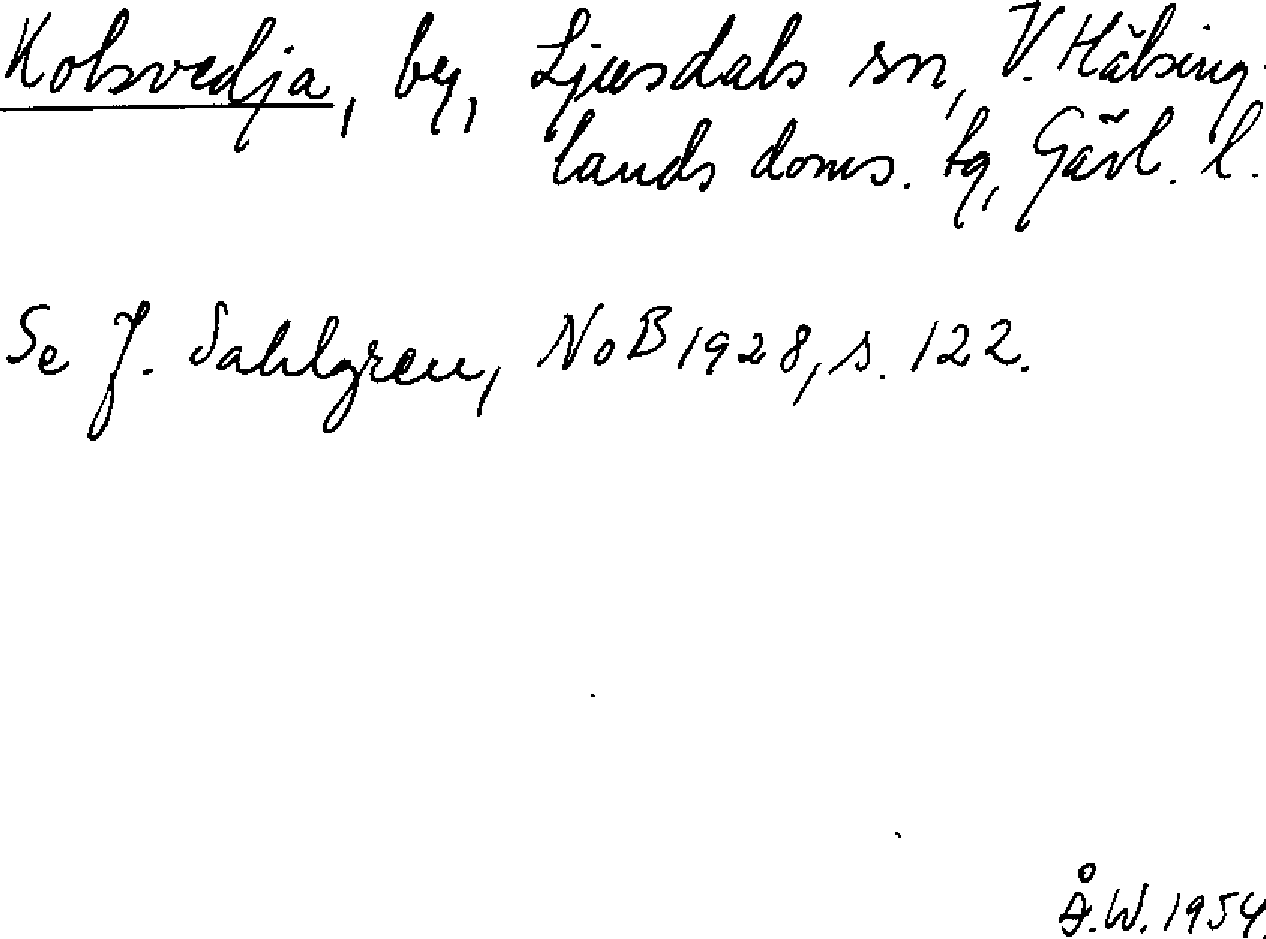 Kolsvedja, by, Ljusdals sn, V. Hälsing-
lands doms. tg, Gävl. l.
Se J. Sahlgren, NoB 1928, s. 122.
Å.W. 1954.